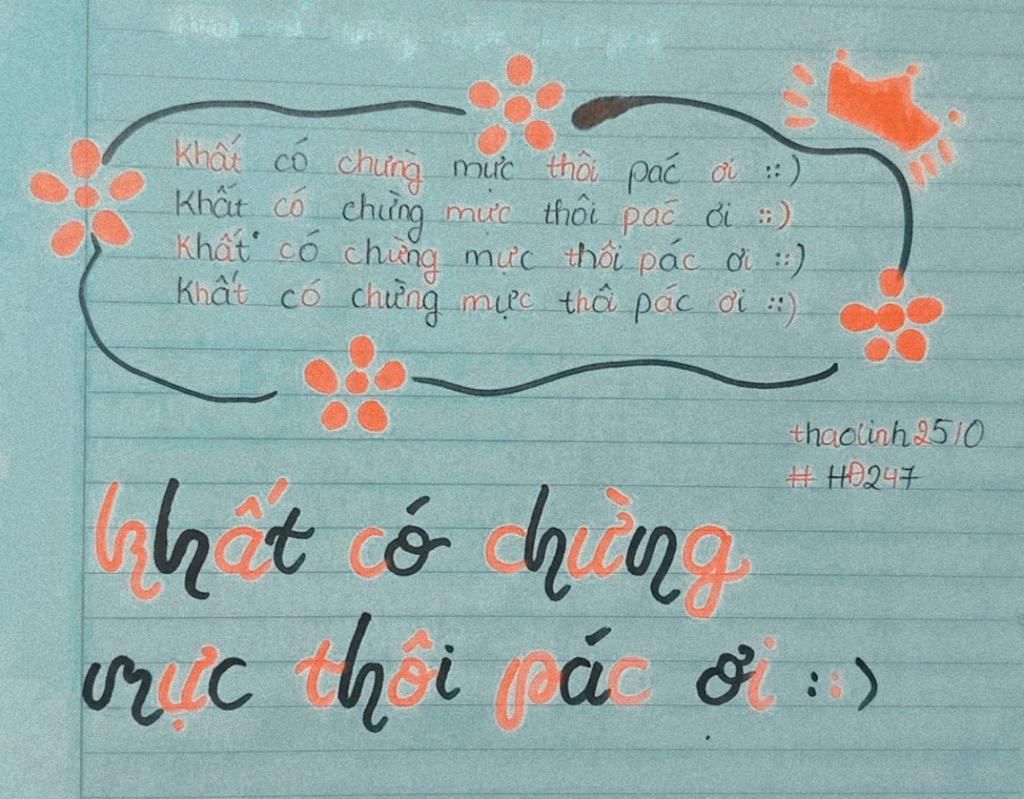 Khất có chừng mực thôi pác ơi ::)
Khất có chừng mực thôi pác ơi ::)
Khất có chừng mực thôi pác ơi ::)
Khất có chừng mực thôi pác ơi ::)
thaolinh2510
# HĐ247
khất có chừng
mực thôi pác ơi ::)